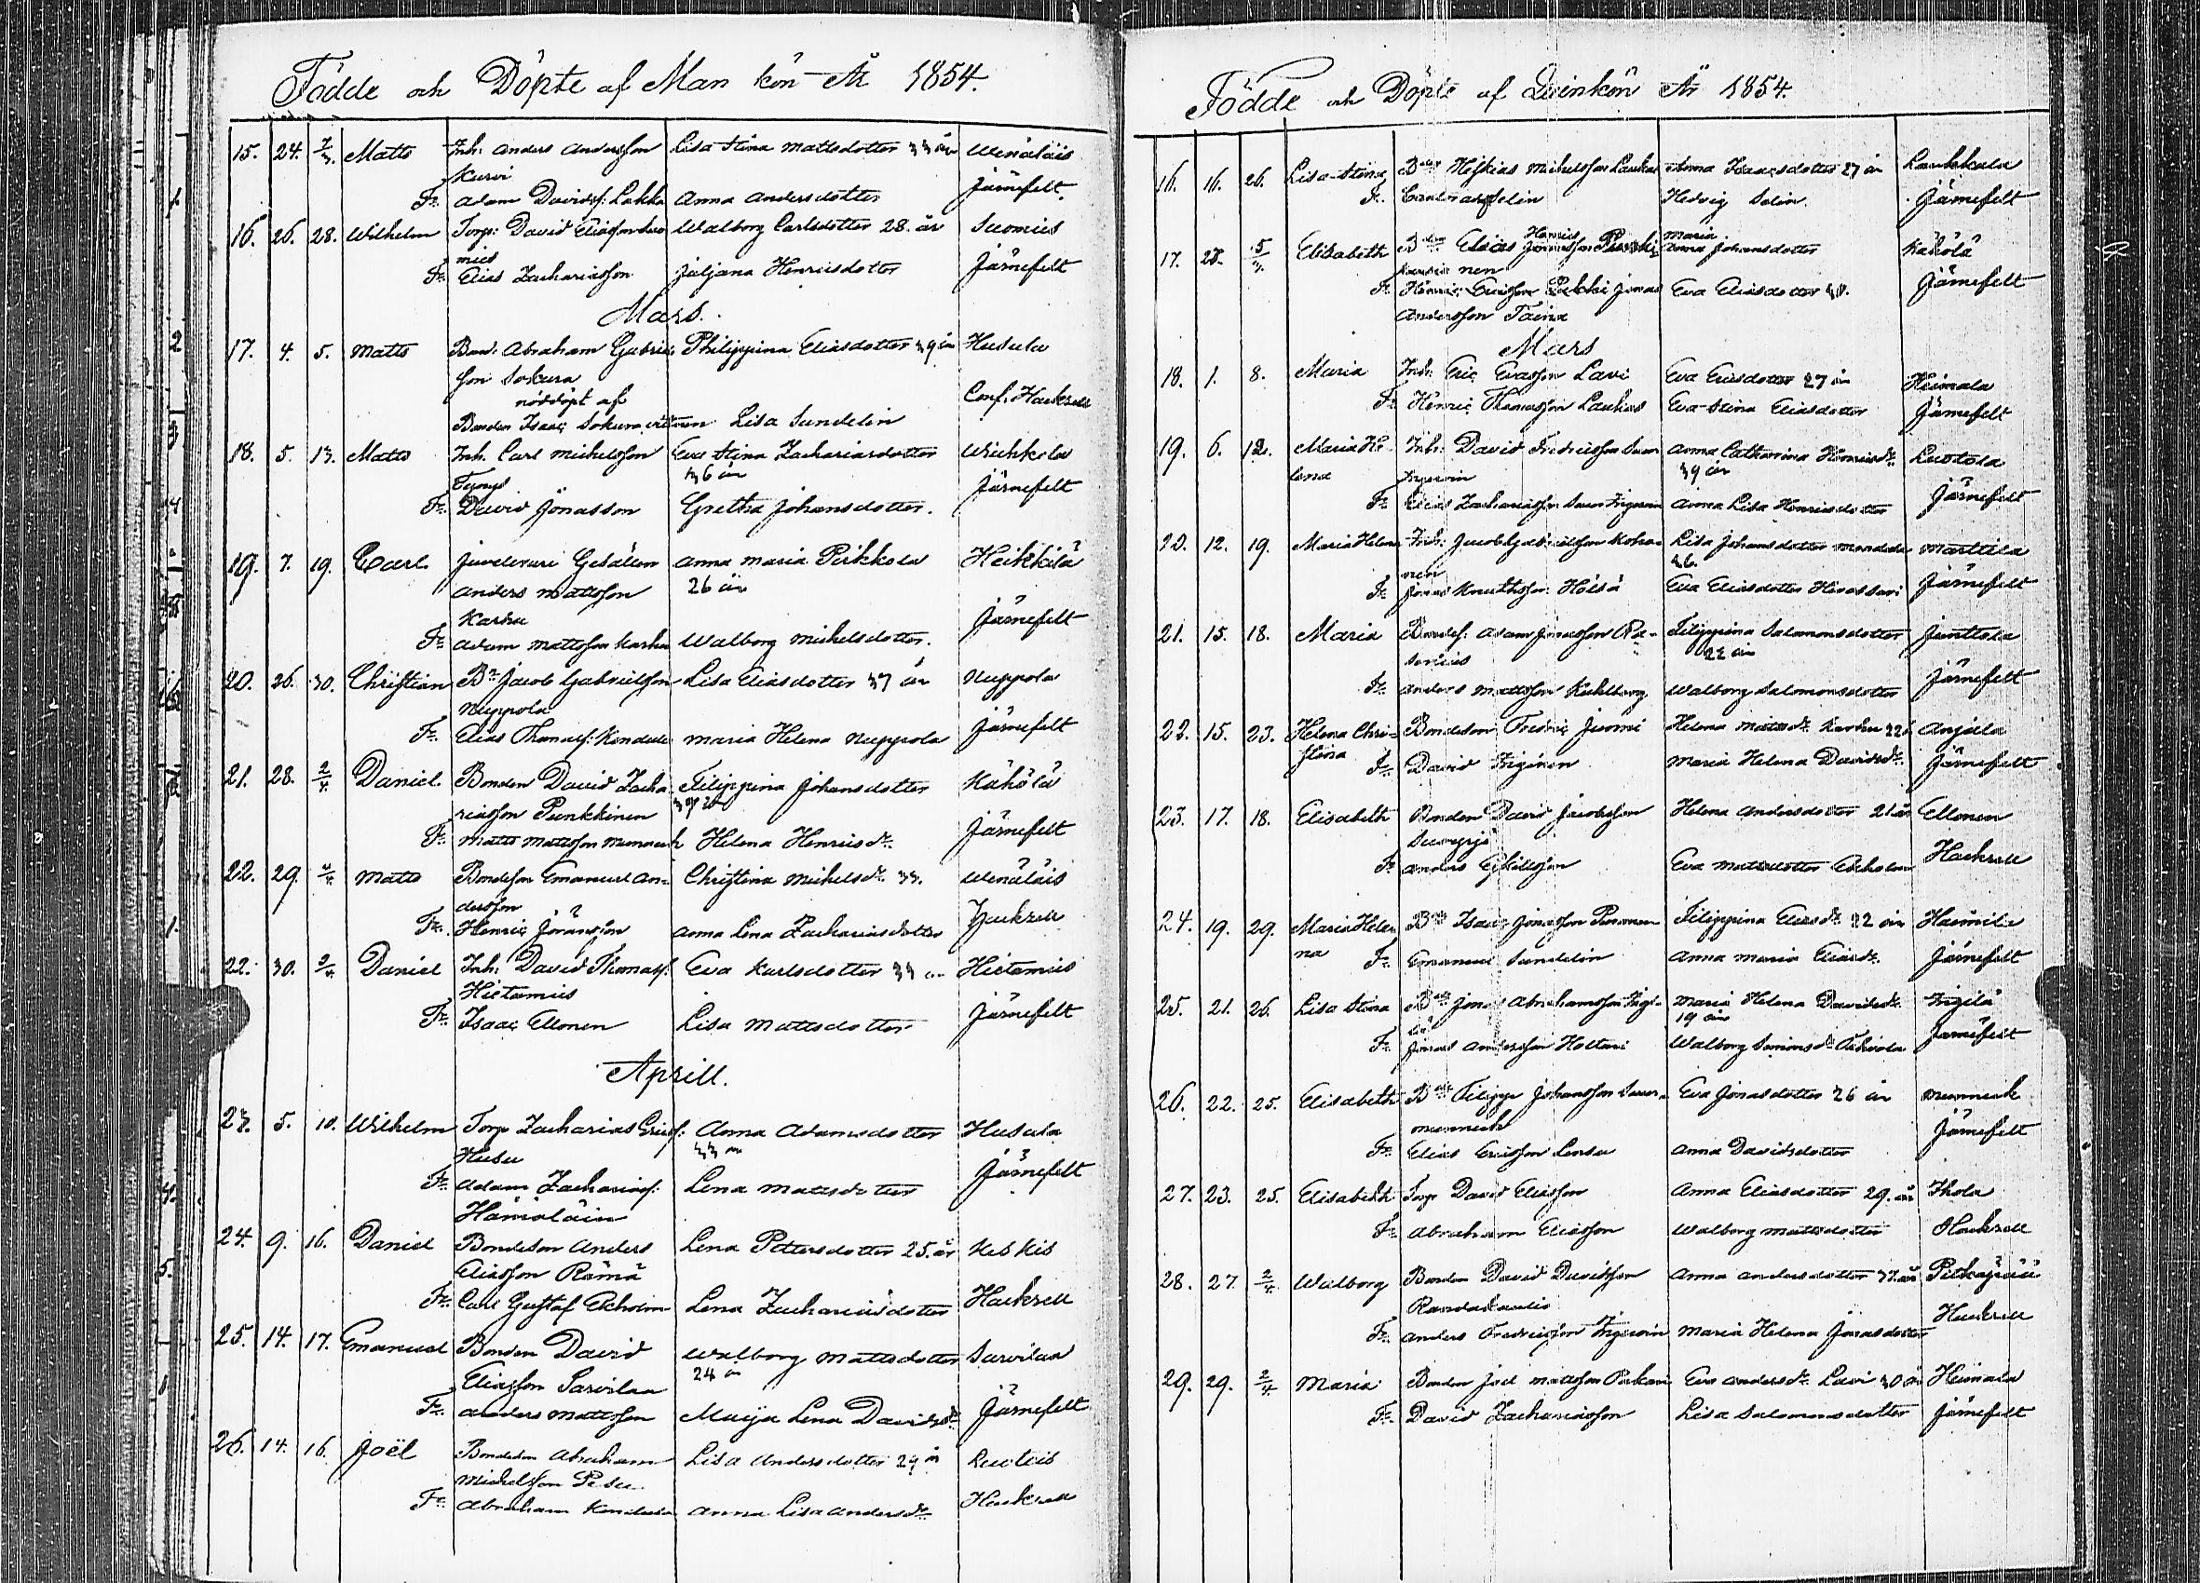 Födde och Döpte af Man kön År 1854.
15. 24. 2/3. Matts Inh. Anders Andersson Lisa Stina Mattsdotter 33 år Wenäläis
Kurvi
Fr. Adam Davidss: Lakka Anna Andersdotter Järnefelt.
16. 26. 28. Wilhelm Torp: David Eliasson Walborg Carlsdotter 28. år Suomies
mies
Fr. Elias Zachariasson Juljana Henricsdotter Järnefelt
Mars.
17. 4. 5. Matts Bond. Abraham Gabriels Philippina Eliasdotter 39 år Husula
son Sokura
nöddöpt af Conf. Hackzell
Bonden Isaac Sokura, vittnen Lisa Sundelin
18. 5. 13. Matts Inh. Carl Michelsson Eva Stina Zachariasdotter Wiuhkola
36 år
Fr. David Jönasson Gretha Johansdotter. Järnefelt
19. 7. 19. Carl Juvelerare Gesällen Anna Maria Pirkkola Heikkilä
Anders Mattsson 26 år
Karhu Järnefelt
Fr. Adam Mattsson Karhu Walborg Michelsdotter.
20. 26. 30. Christian Bn Jacob Gabrielsson Lisa Eliasdotter 37 år Nuppola
Nuppola
Fr. Elias Thomass: Maria Helena Nuppola Järnefelt
21. 28. 2/4 Daniel Bonden David Zacha- Filippina Johansdotter Kähölä
riasson Punkkinen 39 år
Fr. Matts Mattsson Helena Henricsdr. Järnefelt
22. 29. 2/4 Matts Bondeson Emanuel An- Christina Michelsdr. 33. Wenäläis
dersson
Fr. Henric Göransson Anna Lena Zachariasdotter Hackzell
22. 30. 2/4 Daniel Inh. David Thomass: Eva Karlsdotter 33 år Hietamies
Hietamies
Fr. Isaac Ellonen Lisa Mattsdotter Järnefelt
Aprill.
23. 5. 10. Wilhelm Torp Zacharias Ericss: Anna Adamsdotter Husula
Husu 33 år
Fr. Adam Zachariass: Lena Mattsdotter Järnefelt
Hämäläin
24. 9. 16. Daniel Bondeson Anders Lena Pettersdotter 25. år Keskis
Eliasson Rämä
Fr. Carl Gustaf Ekholm Lena Zachariasdotter Hackzell
25. 14. 17. Emanuel Bonden David Walborg Mattsdotter Sarvilax
Eliasson Sarvilax 24 år
Fr. Anders Mattsson Maija Lena Davidsdr. Järnefelt
26. 14. 16. Joël Bondeson Abraham Lisa Andersdotter 29 år
Michelsson Pesu
Fr. Abraham Anna Lisa Andersdr. Hackzell
Födde och Döpte af Qvinkön År 1854.
16. 16. 26. Lisa-Stina Bn Heskias Michelsson Laukas Anna Isaacsdotter 27 år Laukkala
Fr. Selin Hedvig Selin. Järnefelt
17. 25. 5/3. Elisabeth Bn Elias Maria Johansdotter Kähölä
Fr. Henric Ericsson Jonas Eva Eliasdotter Järnefelt
Andersson Taina
Mars
18. 1. 8. Maria Inh. Eric Evasson Lavi Eva Ericsdotter 27 år Heimala
Fr. Henric Thomasson Laukas Eva-Stina Eliasdotter Järnefelt
19. 6. 12. Maria He- Inh. David Fredricsson Suur Anna Catharina Henricsdr.
lena 39 år
Fr. Elias Zachariasson Anna Lisa Henricsdotter Järnefelt
20. 12. 19. Maria Helena Inh. Jacob Gabrielsson Koho- Lisa Johansdotter Marttila
nen 36.
Fr. Jonas Knuthsson Hölsä Eva Eliasdotter Järnefelt
21. 15. 18. Maria Bondes: Adam Jonasson Filippina Salomonsdotter Junttola
22 år
Fr. Anders Mattsson Walborg Salomonsdotter Järnefelt
22. 15. 23. Helena Chri- Bondeson Fredric Helena Mattsdr. Karhu 22 Anjala
stina
Fr. David Maria Helena Davidsdr. Järnefelt
23. 17. 18. Elisabeth Bonden David Jacobsson Helena Andersdotter 21 år Ellonen
Fr. Anders Eva Mattsdotter Ekholm Hackzell
24. 19. 29. Maria Hele- Bn Isaac Jonasson Filippina Eliasdr. 22 år
na Fr. Emanuel Sundelin Anna Maria Eliasdr. Järnefelt
25. 21. 26. Lisa Stina Bn Jonas Abrahamsson Maria Helena Davidsdr. Ingilä
19 år
Fr. Jonas Andersson Walborg Simonsdr. Järnefelt
26. 22. 25. Elisabeth Bn Filipp Johansson Suur- Eva Jonasdotter 26 år
Fr. Elias Ericsson Anna Davidsdotter Järnefelt
27. 23. 25. Elisabeth Torp David Eliasson Anna Eliasdotter 29. år Ihola
Fr. Abraham Eliasson Walborg Mattsdotter Hackzell
28. 27. 2/4. Walborg Bonden David Davidsson Anna Andersdotter 37 år
Fr. Anders Fredricsson Maria Helena Jonasdotter Hackzell
29. 29. 2/4 Maria Bonden Joel Mattsson Eva Andersdr. Lavi 30 år Heimala
Fr. David Zachariasson Lisa Salomonsdotter Järnefelt